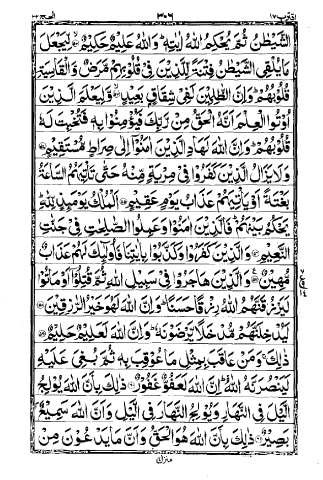 اقترب ١٧ ٣٠٦ الحج ٢٢
الشَّيْطٰنُ ثُمَّ يُحْكِمُ اللّٰهُ اٰيٰتِهٖ ؕ وَاللّٰهُ عَلِيْمٌ حَكِيْمٌ ۙ لِّيَجْعَلَ
مَا يُلْقِى الشَّيْطٰنُ فِتْنَةً لِّلَّذِيْنَ فِيْ قُلُوْبِهِمْ مَّرَضٌ وَّالْقَاسِيَةِ
قُلُوْبُهُمْ ؕ وَاِنَّ الظّٰلِمِيْنَ لَفِيْ شِقَاقٍۭ بَعِيْدٍ ۙ وَّلِيَعْلَمَ الَّذِيْنَ
اُوْتُوا الْعِلْمَ اَنَّهُ الْحَقُّ مِنْ رَّبِّكَ فَيُؤْمِنُوْا بِهٖ فَتُخْبِتَ لَهٗ
قُلُوْبُهُمْ ؕ وَاِنَّ اللّٰهَ لَهَادِ الَّذِيْنَ اٰمَنُوْۤا اِلٰى صِرَاطٍ مُّسْتَقِيْمٍ
وَلَا يَزَالُ الَّذِيْنَ كَفَرُوْا فِيْ مِرْيَةٍ مِّنْهُ حَتّٰى تَاْتِيَهُمُ السَّاعَةُ
بَغْتَةً اَوْ يَاْتِيَهُمْ عَذَابُ يَوْمٍ عَقِيْمٍ اَلْمُلْكُ يَوْمَئِذٍ لِّلّٰهِ ؕ
يَحْكُمُ بَيْنَهُمْ ؕ فَالَّذِيْنَ اٰمَنُوْا وَعَمِلُوا الصّٰلِحٰتِ فِيْ جَنّٰتِ
النَّعِيْمِ وَالَّذِيْنَ كَفَرُوْا وَكَذَّبُوْا بِاٰيٰتِنَا فَاُولٰٓئِكَ لَهُمْ عَذَابٌ
مُّهِيْنٌ وَالَّذِيْنَ هَاجَرُوْا فِيْ سَبِيْلِ اللّٰهِ ثُمَّ قُتِلُوْۤا اَوْ مَاتُوْا
لَيَرْزُقَنَّهُمُ اللّٰهُ رِزْقًا حَسَنًا ؕ وَاِنَّ اللّٰهَ لَهُوَ خَيْرُ الرّٰزِقِيْنَ
لَيُدْخِلَنَّهُمْ مُّدْخَلًا يَّرْضَوْنَهٗ ؕ وَاِنَّ اللّٰهَ لَعَلِيْمٌ حَلِيْمٌ
ذٰلِكَ ۚ وَمَنْ عَاقَبَ بِمِثْلِ مَا عُوْقِبَ بِهٖ ثُمَّ بُغِيَ عَلَيْهِ
لَيَنْصُرَنَّهُ اللّٰهُ ؕ اِنَّ اللّٰهَ لَعَفُوٌّ غَفُوْرٌ ذٰلِكَ بِاَنَّ اللّٰهَ يُوْلِجُ
الَّيْلَ فِي النَّهَارِ وَيُوْلِجُ النَّهَارَ فِي الَّيْلِ وَاَنَّ اللّٰهَ سَمِيْعٌۢ
بَصِيْرٌ ذٰلِكَ بِاَنَّ اللّٰهَ هُوَ الْحَقُّ وَاَنَّ مَا يَدْعُوْنَ مِنْ
منزل